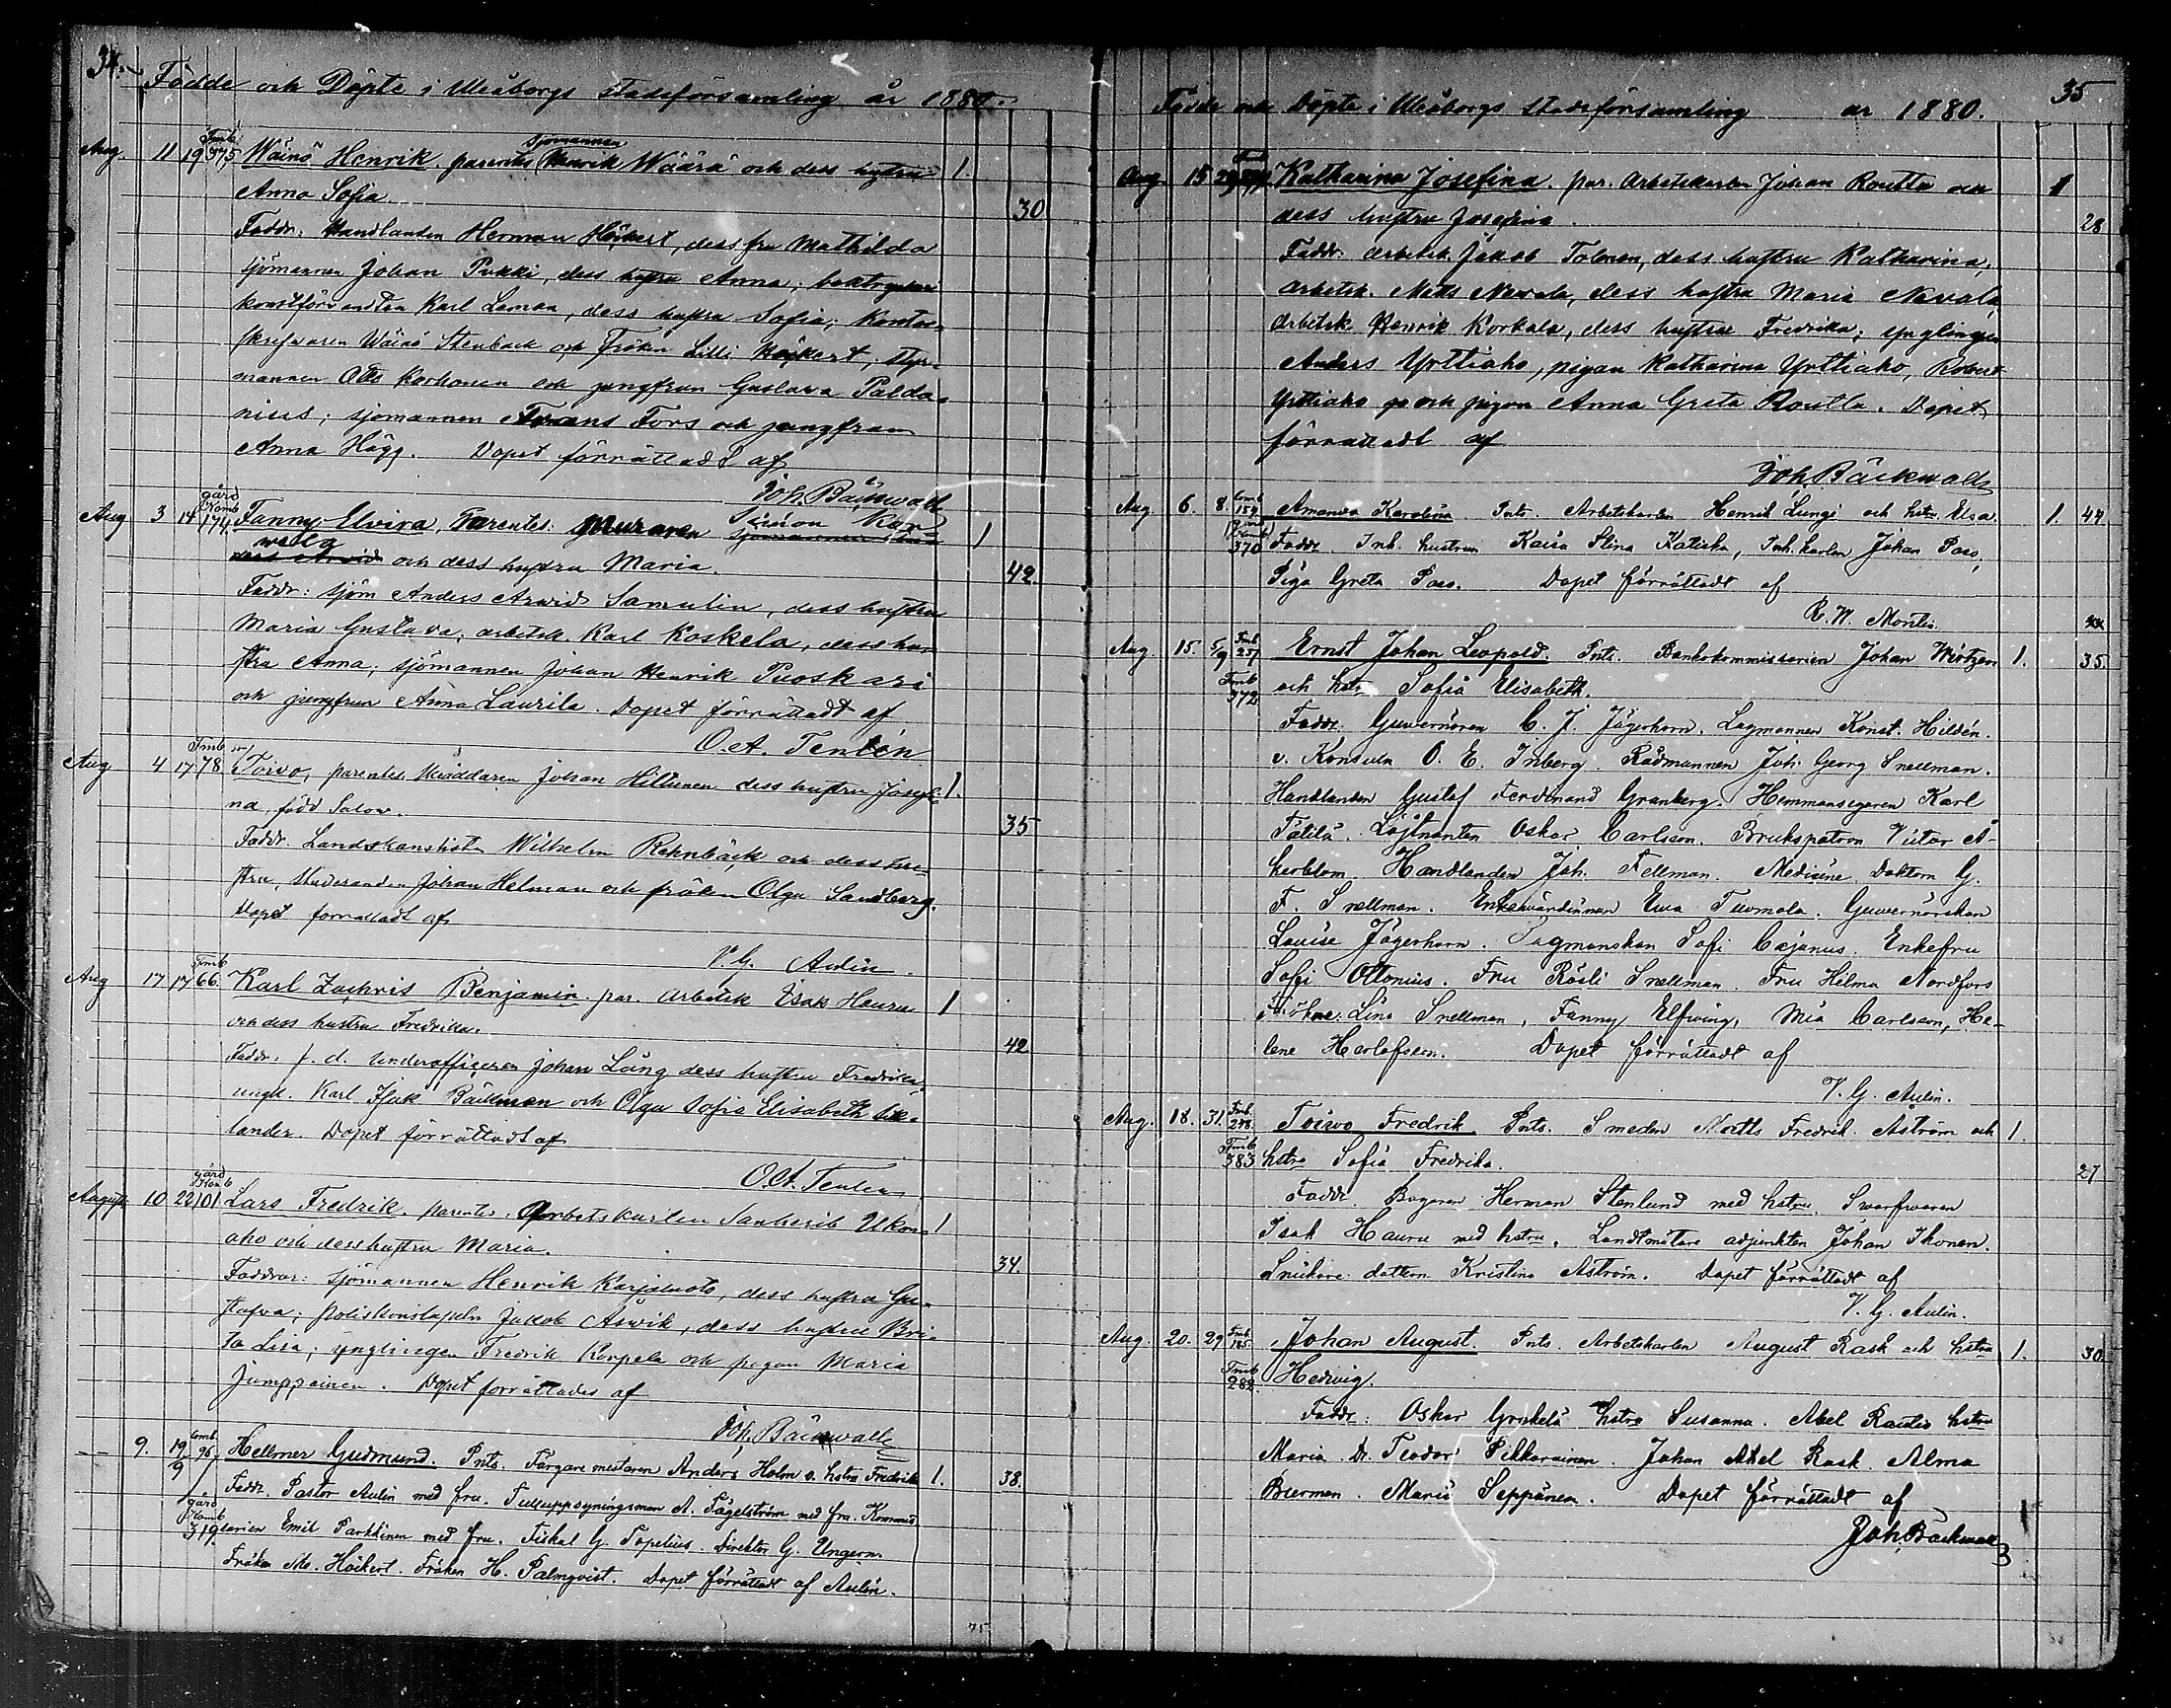 34.
Födde och Döpte i Uleåborgs stadsförsamling år 1880.
Aug. 11 19 Fmb 375 Wäinö Henrik. parentes sjömannen Henrik Wäärä och dess hustru 1.
Anna Sofia 30
Faddr: Handlanden Herman Höckert, dess fru Mathilda
sjömannen Johan Pukki, dess hustru Anna; boktryckeri
konstförvandten Karl Leman, dess hustru Sofia; Kontor-
skrifwaren Wäinö Stenbäck och Fröken Lilli Höckert, Styr-
mannen Otto Korhonen och jungfrun Gustava Palda-
nius; sjömannen Frans Fors och jungfrun
Anna Hägg. Dopet förrättadt af
Joh. Bäckwall
Aug 3 14 gård Komb 174 Fanny Elvira, Parentes: Muraren Simon Kar 1
och dess hustru Maria. 42.
Faddr: sjöm Anders Arwid Samulin, dess hustru
Maria Gustava; arbetsk. Karl Koskela, dess hu-
stru Anna; sjömannen Johan Henrik Puoskari
och jungfrun Anna Laurila. Dopet förrättadt af
O.A. Tenlén
Aug 4 17 Fmb 78 Toivo, parentes Kürddaren Johan Hiltunen dess hustru Josefi- 1.
na född Salow. 35
Faddr. Landskanslisten Wilhelm Rehnbäck och dess hu-
stru, Studeranden Johan Helman och fröken Olga Sandberg.
Dopet förrättadt af
V. G. Aulin.
Aug 17 17 Fmb 66. Karl Zachris Benjamin par. arbetsk Esak Hauru 1
och dess hustru Fredrika. 42
Faddr: f. d. Underofficeren Johan Lång dess hustru Fredrika,
yngl. Karl Isak Bäckman och Olga Sofia Elisabeth Sie-
lander. Dopet förrättadt af
O.A. Tenlén
Augusti 10 22 gård Komb 101 Lars Fredrik. parentes. Arbetskarlen Sanherib Ukon- 1
aho och dess hustru Maria. 34.
Faddrar: sjömannen Henrik Karjaluoto, dess hustru Gu-
stafva; poliskonstapeln Jakob Åswik, dess hustru Bri-
ta Lisa; ynglingen Fredrik Korpela och pigan Maria
Jumppainen. Dopet förrättades af
Joh. Bäckwall
— 9. 19/9 Komb. 96. Hellmer Gudmund. Prnts. Färgare mestaren Anders Holm o. hstru Fredrika 1. 38.
Faddr. Pastor Aulin med fru. Tulluppsyningsman A. Fagelström med fru. Kommis
gård Komb 319. sarien Emil Parkkinen med fru. Fiskal G. Topelius. Direktor G. Ungern.
Fröken Ms. Höckert. Fröken H. Palmqvist. Dopet förrättadt af Aulin.
75
35
Födde och Döpte i Uleåborgs stadsförsamling år 1880.
Aug 15 Katharina Josefina. par. Arbetskarlen Johan Routtu och 1
dess hustru Josefina. 28
Faddr: arbetsk. Jakob Tolonen, dess hustru Katharina,
arbetsk. Matts Nevala, dess hustru Maria Nevala
arbetsk. Henrik Korkala, dess hustru Fredrika; ynglingen
Anders Yrttiaho, pigan Katharina Yrttiaho, Robert
Yrttiaho och pigan Anna Greta Routtu. Dopet
förrättadt af
Joh Bäckwall
Aug. 6. 8. Komb 159 Amanda Karolina. Prnts. Arbetskarlen Henrik Lungi och hstru Elsa. 1. 44
gård Komb 370 Faddr. Inh. hustrun Kaisa Stina Katiska, Inh. karlen Johan Paso,
Piga Greta Paso. Dopet förrättadt af
R. W. Montin.
Aug. 15. 5/9 Fmb 257 Ernst Johan Leopold. Prnts. Bankokommissarien Johan Wirtzen 1. 35.
Fmb 372 och hstr. Sofia Elisabeth.
Faddr. Guvernören C. J. Jägerhorn. Lagmannen Konst. Hildén.
v. Konsuln O. E. Inberg. Rådmannen Joh. Georg Snellman.
Handlanden Gustaf Ferdinand Granberg. Hemmansegaren Karl
Tätilä. Löjtnanten Oskar Carlsson. Brukspatron Victor Å-
kerblom. Handlanden Joh. Fellman. Medicine Doktorn G.
F. Snellman. Enkewärdinnan Ewa Tuomola. Guvernörskan
Louise Jägerhorn. Lagmanskan Sofi Cajanus. Enkefru
Sofi Ottonius. Fru Rosli Snellman. Fru Hilma Nordfors
Fröknar: Lina Snellman, Fanny Elfving, Mia Carlsson, He-
lene Herlofsson. Dopet förrättadt af
V. G. Aulin.
Aug. 18. 31. Fmb. 278. Toiwo Fredrik Prnts. Smeden Matts Fredrik Åström och 1.
Fmb 383 hstru Sofia Fredrika. 27
Faddr Bagaren Herman Stenlund med hstru. Swarfwaren
Isak Hauru med hstru. Landtmätare adjunkten Johan Ikonen.
Snickare dottern Kristina Åström. Dopet förrättadt af
V. G. Aulin.
Aug. 20. 29 Fmb. 185. Johan August. Prnts. Arbetskarlen August Rask och hstru 1. 30
Fmb 282. Hedwig.
Faddr: Oskar Griskelä hstru Susanna. Abel Rautio hstru
Maria. Dr. Teodor Pikkarainen. Johan Abel Rask. Alma
Bierman. Maria Seppänen. Dopet förrättadt af
Joh. Bäckwall